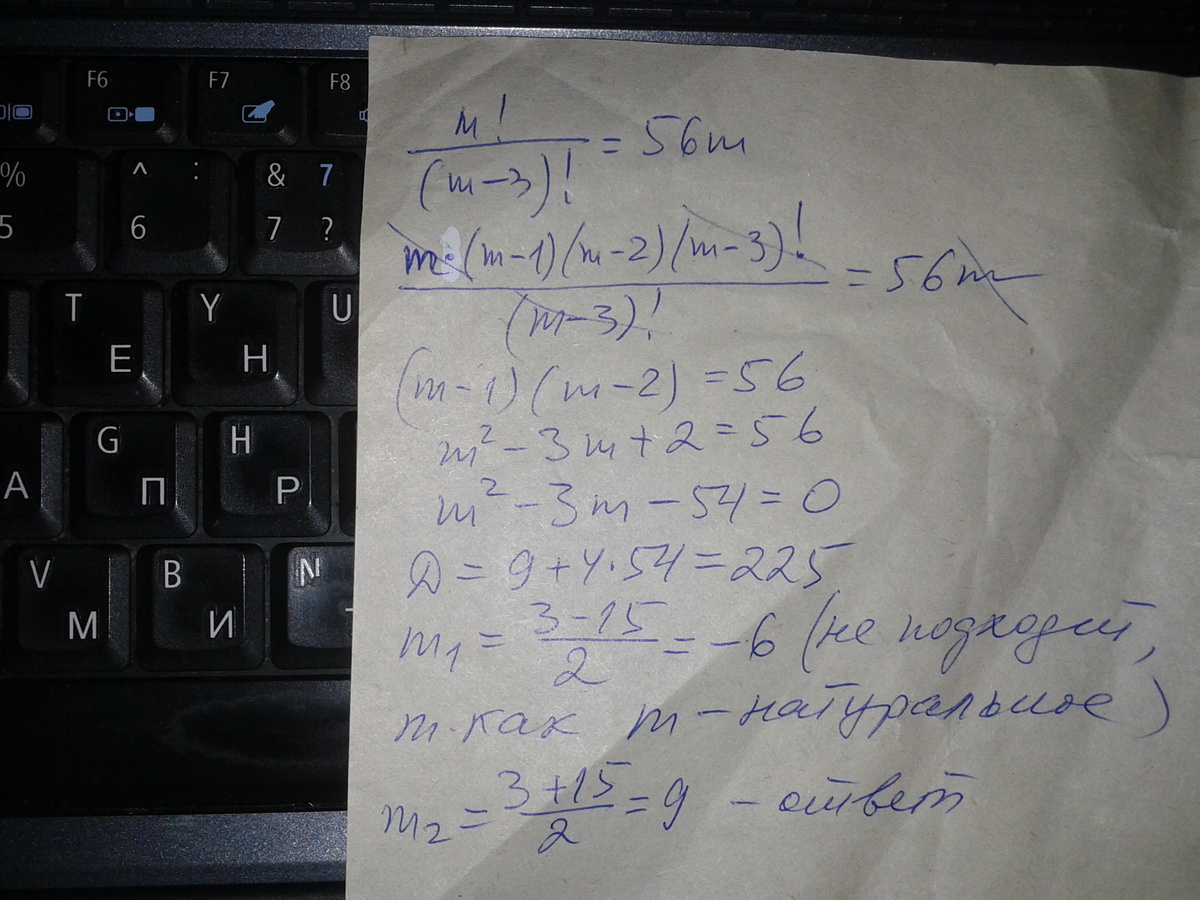 F6 F7 F8
% 5 ^ : 6 & 7 7 ?
T Е Y Н U
А G П H Р
V М B И N
m! / (m-3)! = 56m
m·(m-1)(m-2)(m-3)! / (m-3)! = 56m
(m-1)(m-2) = 56
m² - 3m + 2 = 56
m² - 3m - 54 = 0
D = 9 + 4·54 = 225
m₁ = (3-15)/2 = -6 (не подходит,
т.как m - натуральное)
m₂ = (3+15)/2 = 9 - ответ